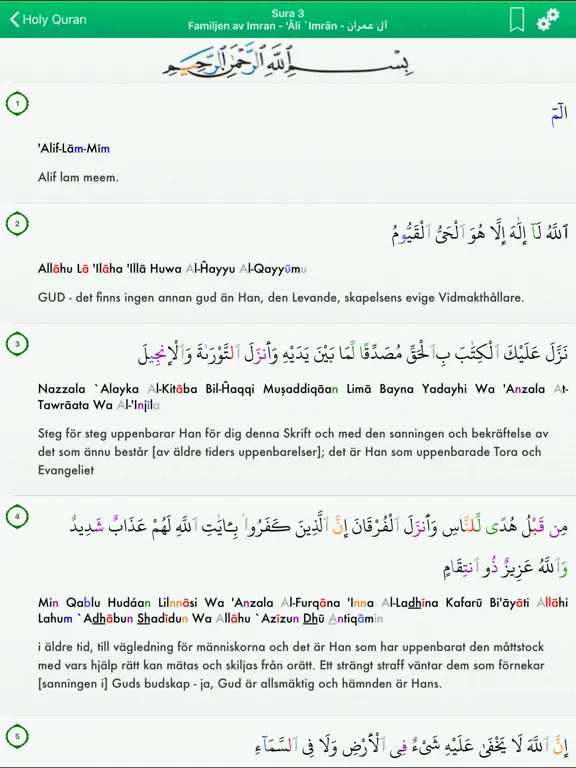 Holy Quran
Sura 3
Familjen av Imran - 'Āli `Imrān - آل عمران
بِسْمِ ٱللَّهِ ٱلرَّحْمَٰنِ ٱلرَّحِيمِ
1
الٓمٓ
'Alif-Lām-Mīm
Alif lam meem.
2
ٱللَّهُ لَآ إِلَٰهَ إِلَّا هُوَ ٱلْحَىُّ ٱلْقَيُّومُ
Allāhu Lā 'Ilāha 'Illā Huwa Al-Ĥayyu Al-Qayyūmu
GUD - det finns ingen annan gud än Han, den Levande, skapelsens evige Vidmakthållare.
3
نَزَّلَ عَلَيْكَ ٱلْكِتَٰبَ بِٱلْحَقِّ مُصَدِّقًا لِّمَا بَيْنَ يَدَيْهِ وَأَنزَلَ ٱلتَّوْرَىٰةَ وَٱلْإِنجِيلَ
Nazzala `Alayka Al-Kitāba Bil-Ĥaqqi Muşaddiqāan Limā Bayna Yadayhi Wa 'Anzala At-
Tawrāata Wa Al-'Injīla
Steg för steg uppenbarar Han för dig denna Skrift och med den sanningen och bekräftelse av
det som ännu består [av äldre tiders uppenbarelser]; det är Han som uppenbarade Tora och
Evangeliet
4
مِن قَبْلُ هُدًى لِّلنَّاسِ وَأَنزَلَ ٱلْفُرْقَانَ إِنَّ ٱلَّذِينَ كَفَرُوا۟ بِـَٔايَٰتِ ٱللَّهِ لَهُمْ عَذَابٌ شَدِيدٌ
وَٱللَّهُ عَزِيزٌ ذُو ٱنتِقَامٍ
Min Qablu Hudáan Lilnnāsi Wa 'Anzala Al-Furqāna 'Inna Al-Ladhīna Kafarū Bi'āyāti Allāhi
Lahum `Adhābun Shadīdun Wa Allāhu `Azīzun Dhū Antiqāmin
i äldre tid, till vägledning för människorna och det är Han som har uppenbarat den måttstock
med vars hjälp rätt kan mätas och skiljas från orätt. Ett strängt straff väntar dem som förnekar
[sanningen i] Guds budskap - ja, Gud är allsmäktig och hämnden är Hans.
5
إِنَّ ٱللَّهَ لَا يَخْفَىٰ عَلَيْهِ شَىْءٌ فِى ٱلْأَرْضِ وَلَا فِى ٱلسَّمَآءِ